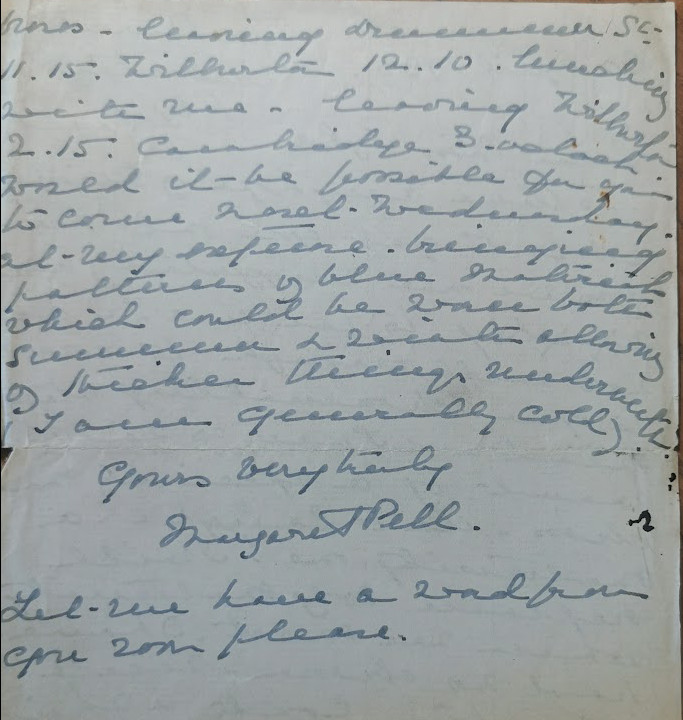 buses - leaving Drummer St-
11.15. Wilburton 12.10. lunching
with me - leaving Wilburton
2.15. Cambridge 3-oclock.
Would it-be possible for you
to come next-Wednesday.
at-my expense. bringing
patterns of blue material
which could be worn both
summer & winter allowing
of thicker things underneath.
(I am generally cold).
Yours very truly
Margaret Pell.
Let-me have a word from
you soon please.